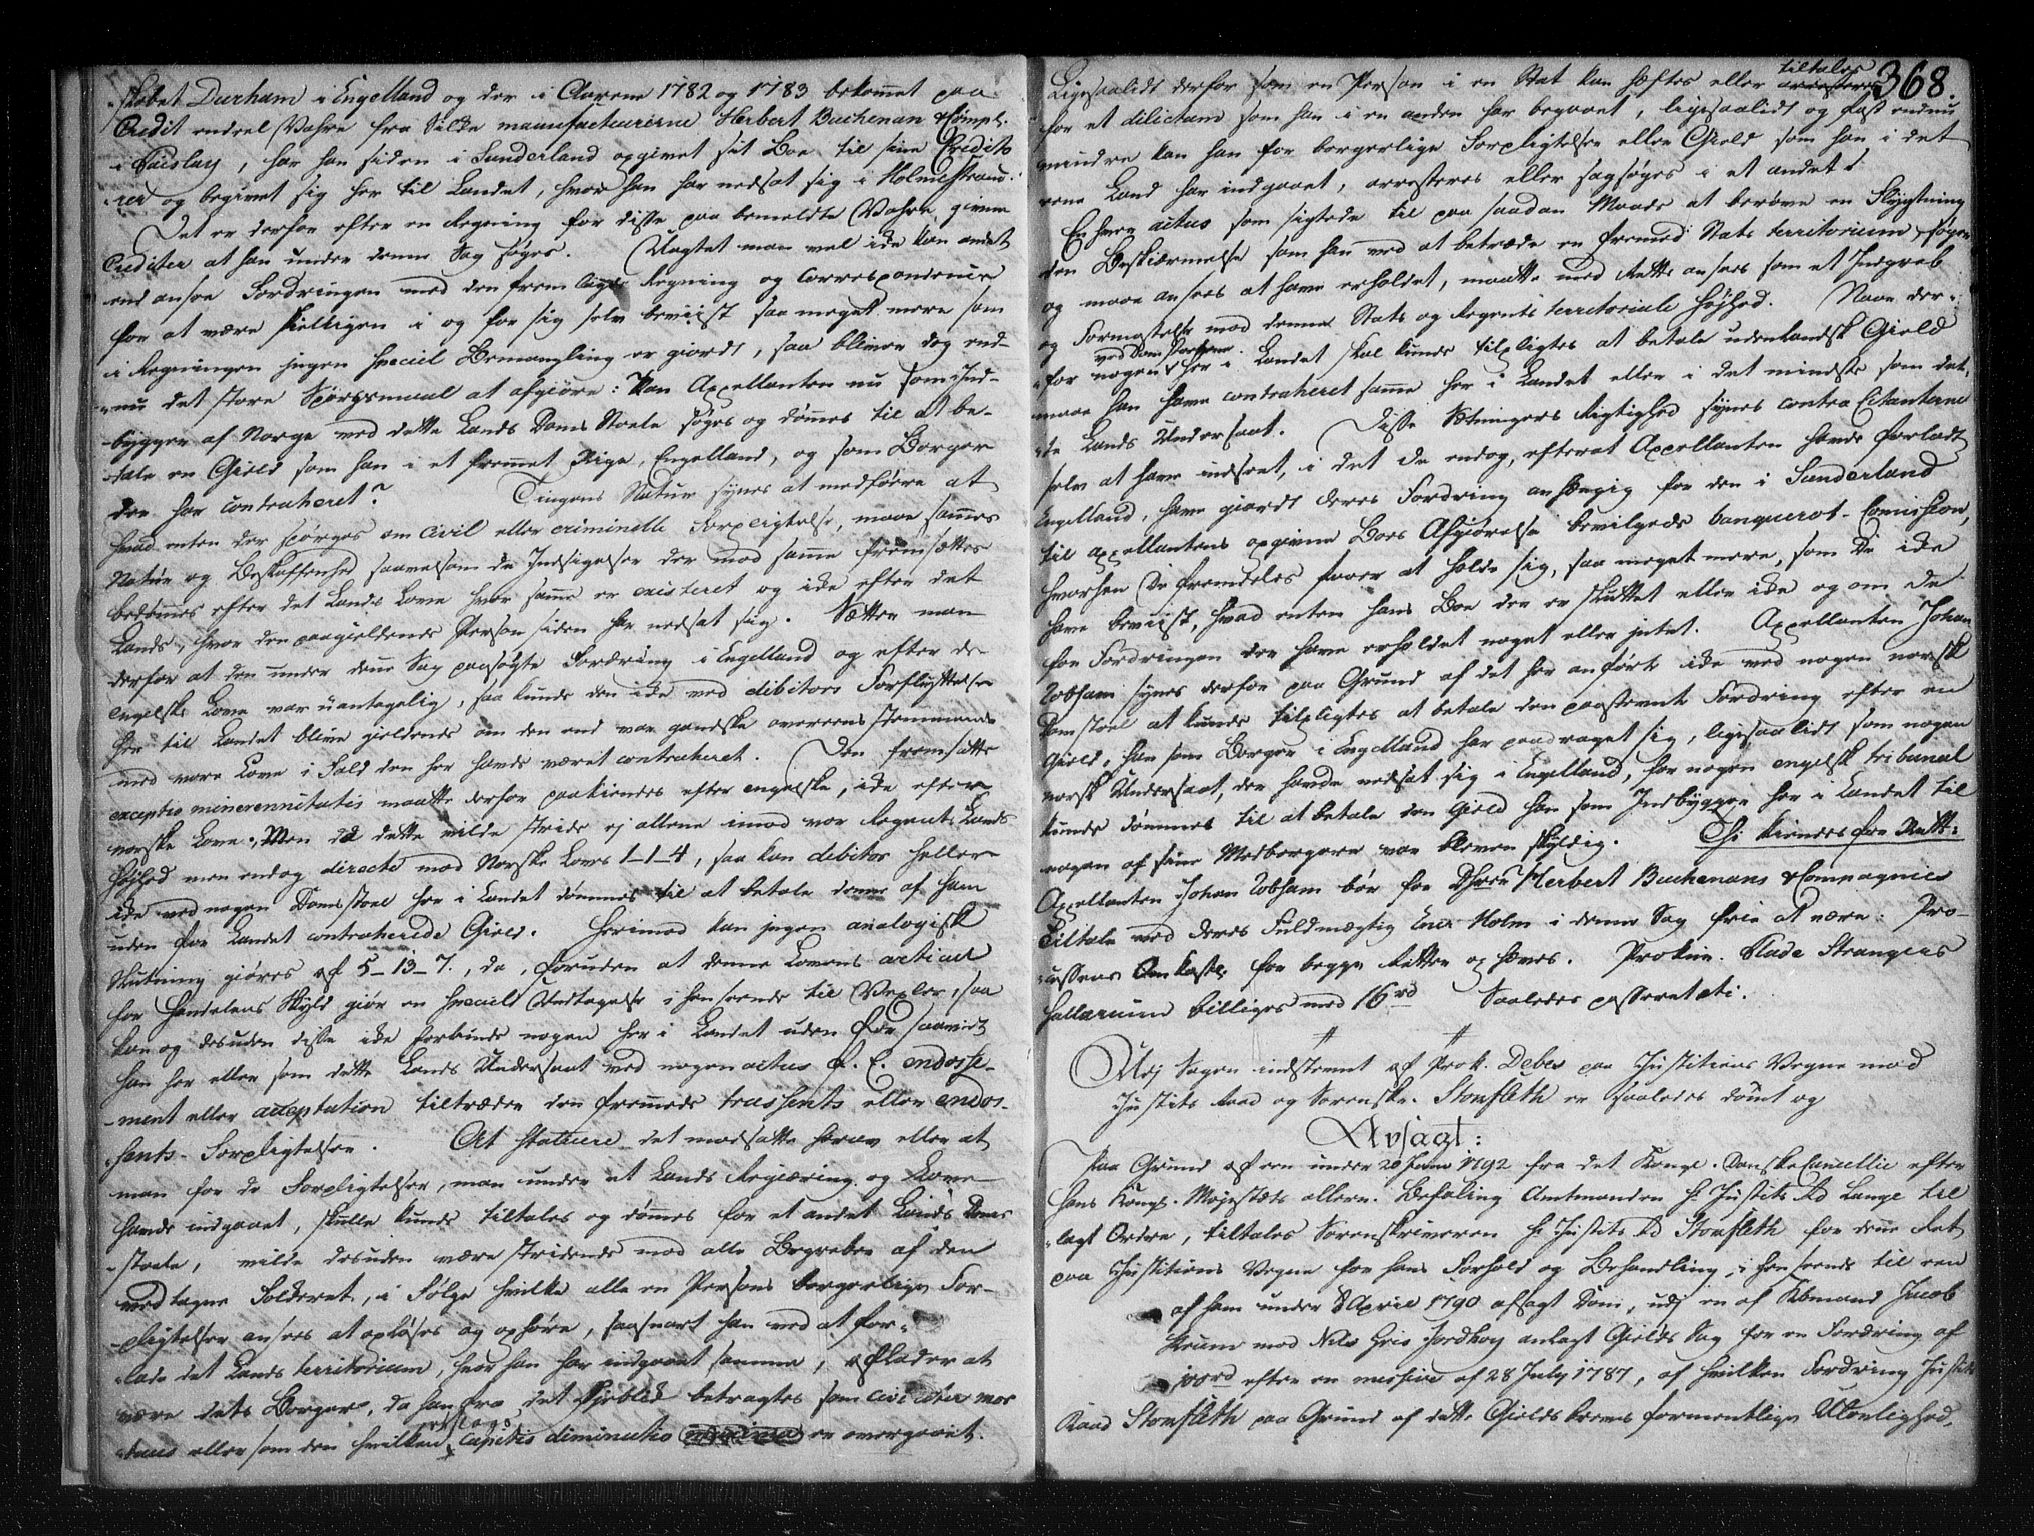 skabet Durham i Engelland og der i Aarene 1782 og 1783 bekommet paa
Credit endeel Vahre fra Silke manufacteurerne Herbert Buchenan & Comp:
i Paislay, har han siden i Sunderland opgivet sit Boe til sine Credito
rer og begivet sig her til Landet, hvor han har nedsat sig i Holmestrand.
Det er derfor efter en Regning for disse paa bemeldte Vahre givne
Crediter at han under denne Sag søges. Uagtet man vel ikke kan andet
end ansee Fordringen med den fremlagte Regning og Correspondence
for at være tilstrækkeligen i og for sig selv beviist saa meget mere som
i Regningen ingen speciel Bemangling er giordt, saa bliver dog end-
nu det store Spørgsmaal at afgiøre: Kan Appellanten nu som Ind-
bygger af Norge ved dette Lands Dom Stoele søges og dømmes til at be-
tale en Gield som han i et fremmet Rige, Engelland, og som Borger
der har contraheret? Tingens Natur synes at medføere at
hvad enten der spørges om Civil eller criminelle Forpligtelse, maae sammes
Natur og Beskaffenhed saavelsom de Indsigelser der mod samme fremsættes
bedømmes efter det Lands Love hvor samme er existeret og ikke efter det
Lands, hvor den paagieldende Person siden har nedsat sig. Sætter man
derfor at den under denne Sag paasøgte Fordring i Engelland og efter de
engelske Love var uantagelig, saa kunde den ikke ved debitors Forflyttelse
her til Landet blive gieldende om den end var gandske overeensstemmende
med vore Love i Fald den her havde været contraheret. Den fremsatte
exceptio minorennitatis maatte derfor paakiendes efter engelske, ikke efter
norske Love. Men da dette vilde stride ej allene imod vor Regents Lands
Høihed men endog directe mod Norske Lovs 1-1-4, saa kan debitor heller
ikke ved nogen Domstoel her i Landet dømmes til at betale denne af ham
uden for Landet contraherede Gield. Herimod kan ingen analogisk
Slutning giøres af 5-13-7., da, foruden at denne Lovens articul
for Handelens Skyld giør en speciel Undtagelse i henseende til Vexler, saa
kan og desuden disse ikke forbinde nogen her i Landet uden for saavidt
han her eller som dette Lands Undersaat ved nogen actus f. E. endosse-
ment eller acceptation tiltræder den fremmede trassents eller endos-
sents Forpligtelser. At statuere det modsatte herav eller at
man for de Forpligtelser, man under et Lands Regiering og Love
havde indgaaet, skulle kunde tiltales og dømmes for et andet Lands Dom
stoele, vilde desuden være stridende mod alle Begreber af den
vedtagne Folkeret, i Følge hvilke alle en Persons borgerlige For-
pligtelser ansees at opløses og ophøre, saasnart han ved at for-
lade det Lands territorium, hvor han har indgaaet samme, aflader at
være dets Borger, da han fra det Øjeblik betragtes som civiliter mor
tuus eller som den hvilken et Slags capitis diminutio er overgaaet.
368.
Ligesaalidt derfor som en Person i en Stat kan hæftes eller tiltales
for et dilictum som han i en anden har begaaet, ligesaalidt og fast endnu
mindre kan han for borgerlige Forpligtelser eller Gield som han i det
eene Land har indgaaet, arresteres eller sagsøges i et andet.
En hver actus som sigtede til paa saadan Maade at berøve en Flygtning
den Beskiærmelse som han ved at betræde en fremmed Stats territorium søger
og maae ansees at have erholdet, maatte med Rette ansees som et Indgreb
og Formastelse mod denne Stats og Regents territoriale Høihed. Naar der-
for nogen ved Domstolene her i Landet skal kunde tilpligtes at betale udenlandsk Gield
maae han have contraheret samme her i Landet eller i det mindste som det-
te Lands Undersaat. Disse Sætningers Rigtighed synes contra Citanterne
selv at have indseet, i det de endog, efterat Appellanten havde forladt
Engelland, have giordt deres Fordring anhængig for den i Sunderland
til appellantens opgivne Boes Afgiørelse bevilgede banquerot-Commission,
hvorhen de fremdeles faaer at holde sig, saa meget mere, som de ikke
have beviist, hvad enten hans Boe der er sluttet eller ikke og om de
for Fordringen der have erholdet noget eller intet. Appellanten Johan
Tobham synes derfor paa Grund af det her anførte ikke ved nogen norsk
Domstoel at kunde tilpligtes at betale den paastevnte Fordring efter en
Gield, han som Borger i Engelland har paadraget sig, ligesaalidt som nogen
norsk Undersaat, der havde nedsat sig i Engelland, for nogen engelsk tribunal
kunde dømmes til at betale den Gield han som Indbygger her i Landet til
nogen af sine Medborgere var bleven skyldig. Thi kiendes for Ret:
Appellanten Johan Tobham bør for Dhrr Herbert Buchenans & Compagnies
Tiltale ved deres Fuldmægtig Ener Holm i denne Sag frie at være. Pro-
cessens Omkostn. for begge Retter ophæves. Prokur. Slade Strangers
Sallarium billiges med 16 rd Saaledes passeret etc.
Udj Sagen indstevnt af Prok. Debes paa Justitiens Vegne mod
Justits Raad og Sorenskr. Stonfleth er saaledes dømt og
Avsagt:
Paa Grund af een under 28 Janv 1792 fra det Kongl. Danske Cancellie efter
Hans Kongl. Majestæts allern. Befaling Amtmanden Hr Justits Rd Lange til
lagt Ordre, tiltales Sorenskriveren Hr Justits Rd Stonfleth for denne Ret
paa Justitiens Vegne for hans Forhold og Behandling, i henseende til een
af ham under 8 April 1790 afsagt Dom, udj en af Kbmand Jacob
Krumm mod Niels Gris Jordhoy anlagt Gields Sag for en Fordring af
rd efter en missive af 28 July 1787, af hvilken Fordring Justits
Raad Stonfleth paa Grund af dette Gieldsbrevs formentlige Ulovlighed,